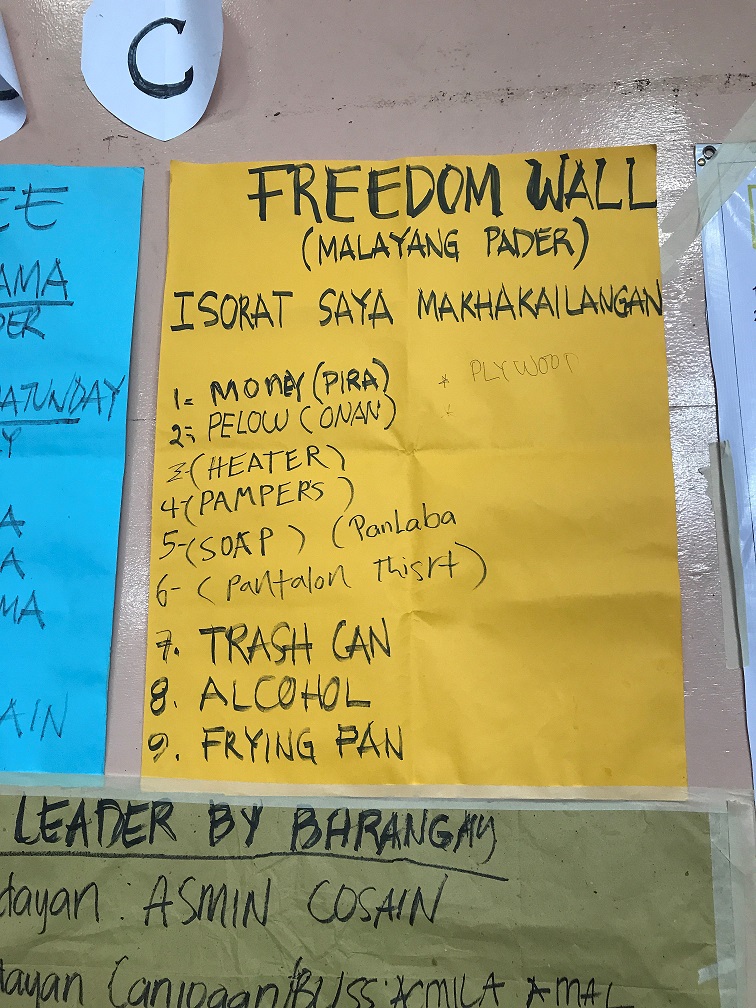 C
EE
AMA
DER
ATUNDAY
Y
A
A
MA
AIN
FREEDOM WALL
(MALAYANG PADER)
ISORAT SAYA MAKHAKAILANGAN
1= MONEY (PIRA) * PLYWOOD
2= PELOW (ONAN)
3-(HEATER)
4-(PAMPERS)
5-(SOAP) (PanLaba
6- (Pantalon Thisrt)
7. TRASH CAN
8. ALCOHOL
9. FRYING PAN
LEADER BY BARANGAY
dayan: ASMIN COSAIN
dayan AMAL